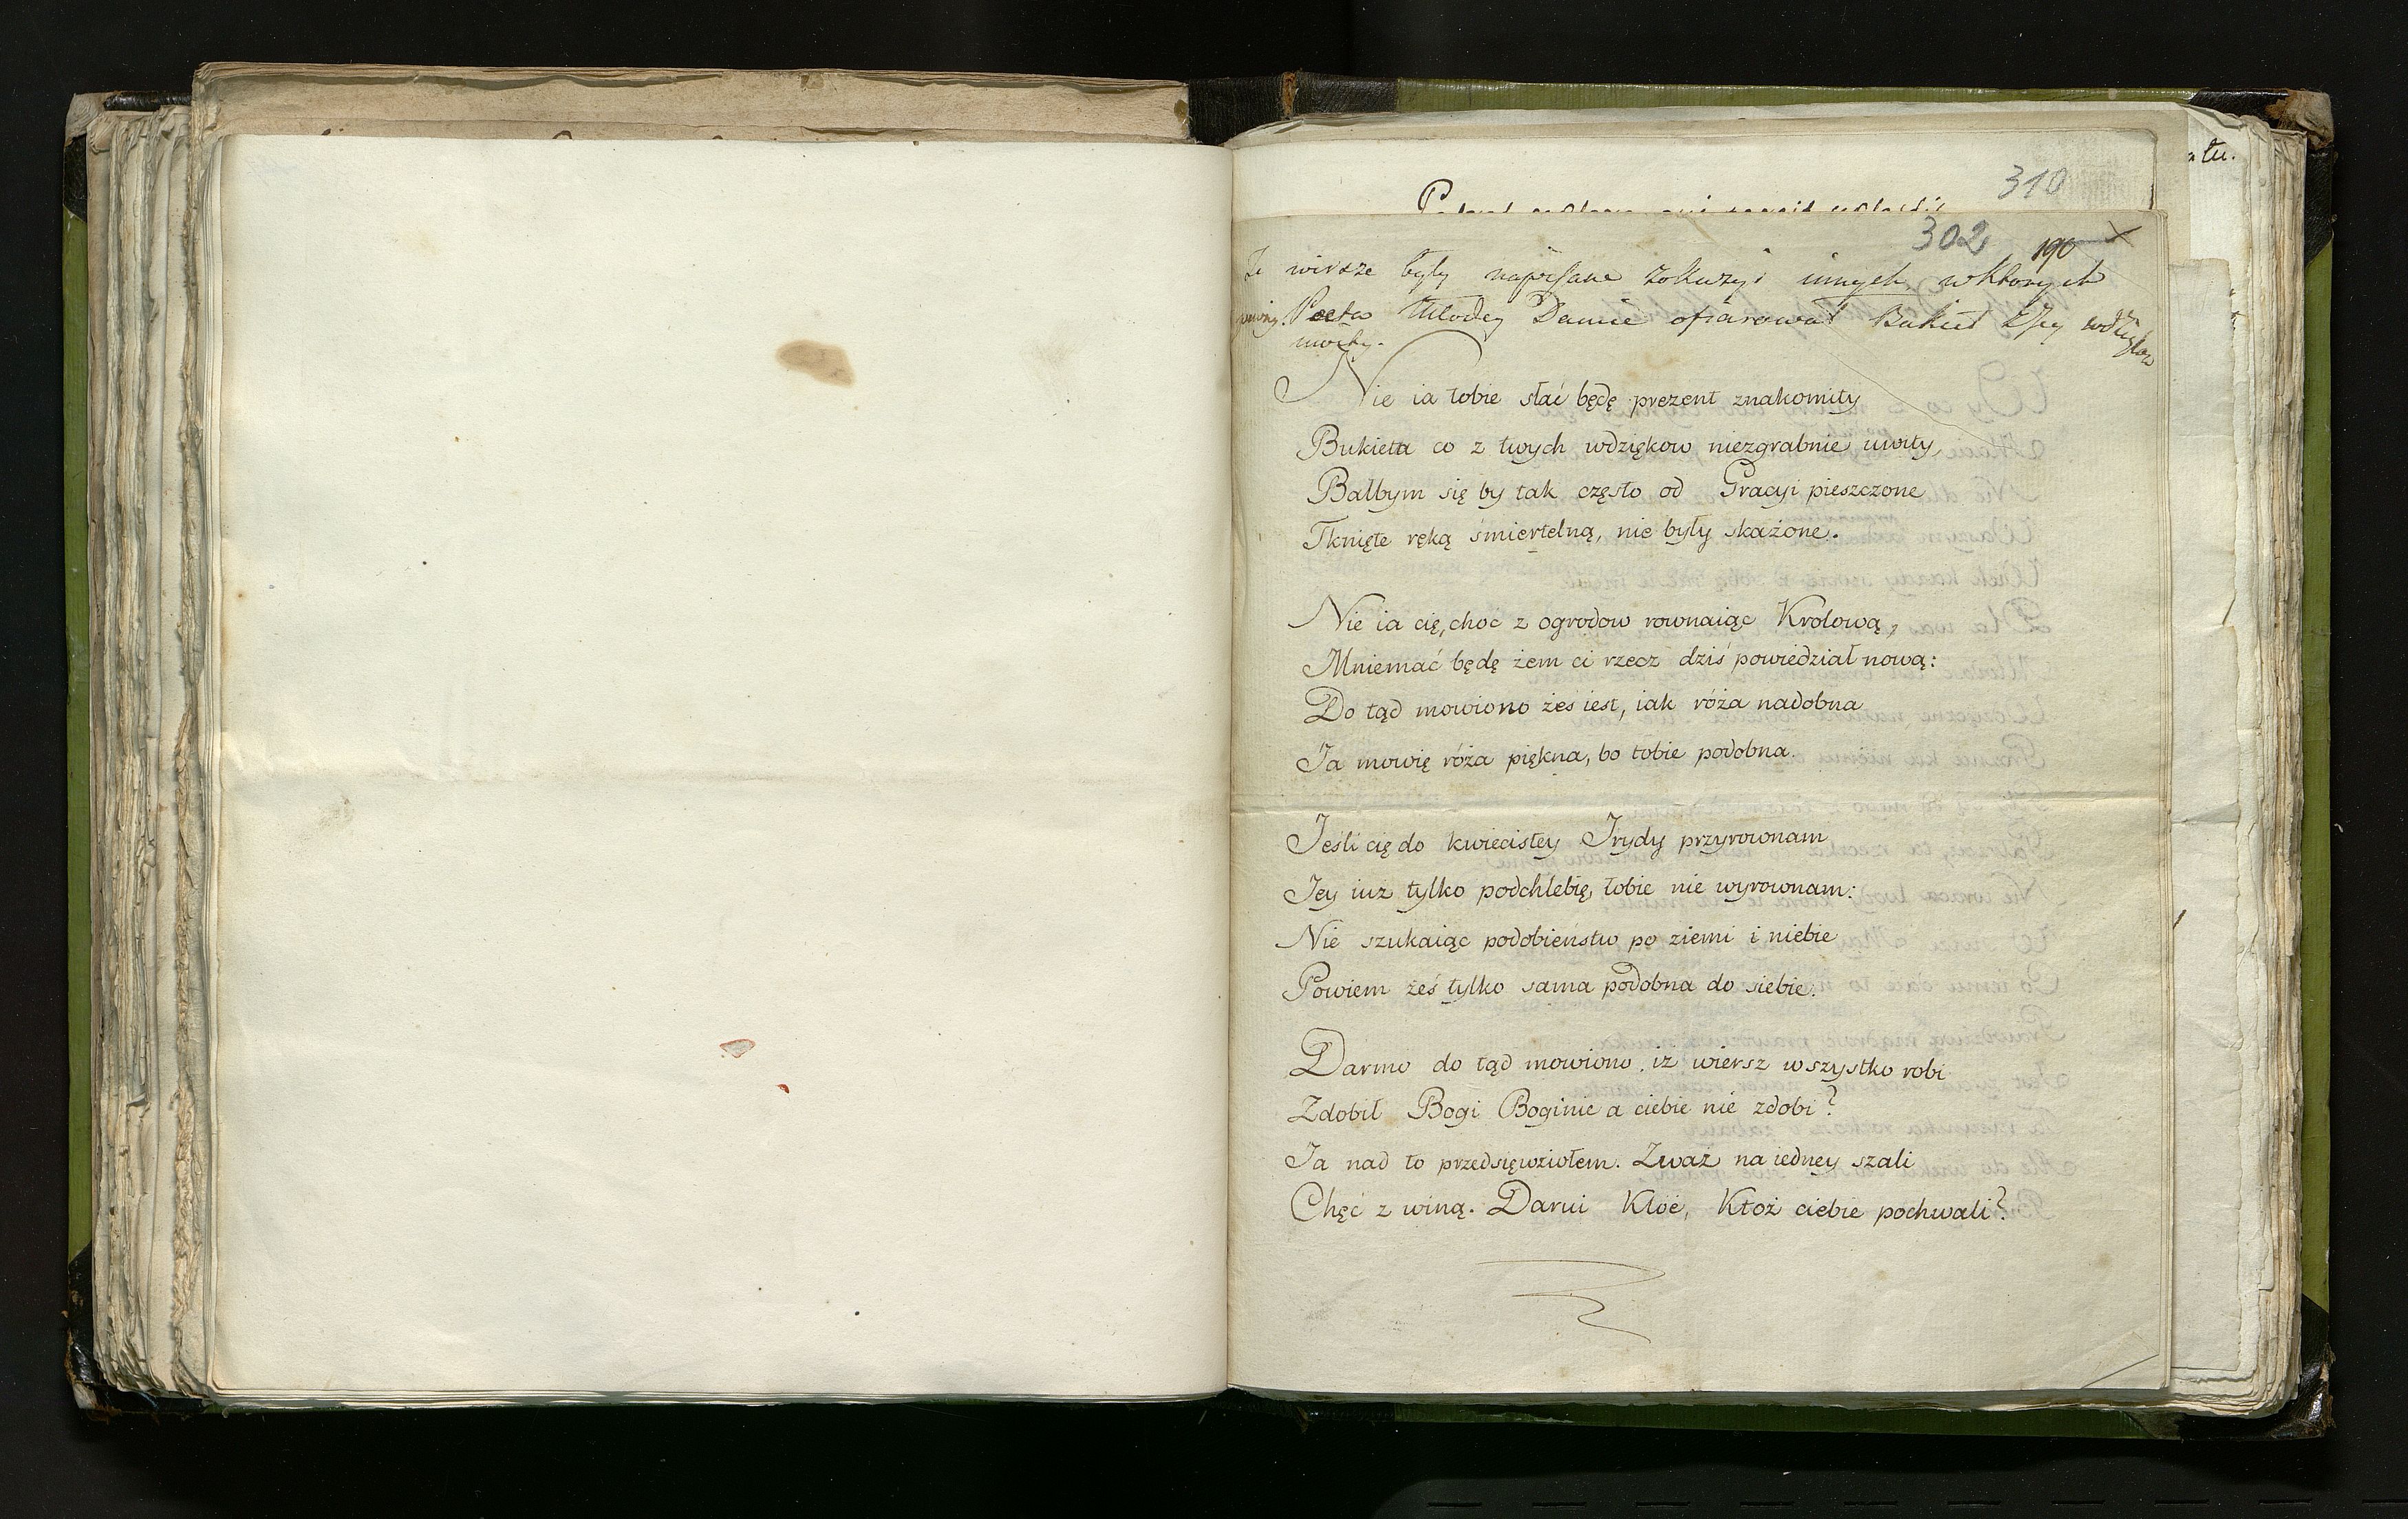 310
302 190 x
Te wirsze były napisane zokazyi innych wktorych
pewny Poeta Młodey Damie ofiarował Bukiet z Jey wdzięków
uwity.
Nie ia tobie słać będę prezent znakomity
Bukieta co z twych wdziękow niezgrabnie uwity,
Bałbym się by tak często od Gracyi pieszczone
Tknięte ręką śmiertelną, nie były skażone.
Nie ia cię, choć z ogrodow rownaiąc Krolową,
Mniemać będę żem ci rzecz dziś powiedział nową:
Do tąd mowiono żeś iest, iak róża nadobna
Ja mowię róża piękna, bo tobie podobna.
Jeśli cię do kwiecistey Irydy przyrownam
Jey iuz tylko podchlebię, tobie nie wyrownam:
Nie szukaiąc podobieństw po ziemi i niebie
Powiem żeś tylko sama podobna do siebie.
Darmo do tąd mowiono, iż wiersz wszystko robi
Zdobił Bogi Boginie a ciebie nie zdobi?
Ja nad to przedsięwziołem. Zważ na iedney szali
Chęć z winą. Darui Kloë, Ktoż ciebie pochwali?